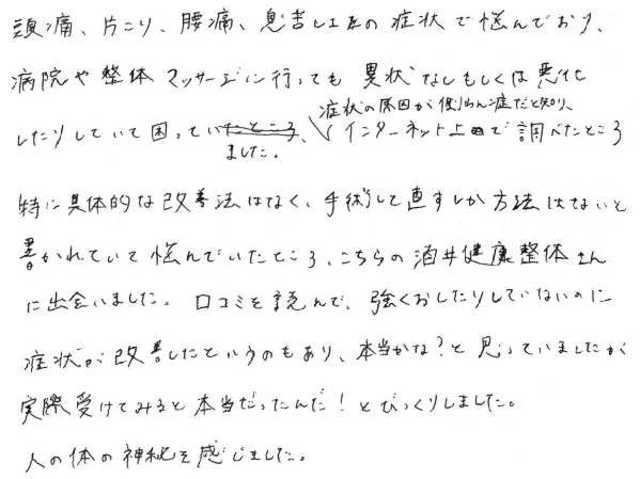 頭痛、片こり、腰痛、息苦しエ等の症状で悩んでおり、
病院や整体マッサージに行っても異状なしもしくは悪化
症状の原因が側わん症だと知り、
したりしていて困っていました。インターネット上で調べたところ
特に具体的な改善法はなく、手術して直すしか方法はないと
書かれていて悩んでいたところ、こちらの酒井健康整体さん
に出会いました。口コミを読んで、強くおしたりしていないのに
症状が改善したというのもあり、本当かな?と思っていましたが
実際受けてみると本当だったんだ!とびっくりしました。
人の体の神秘を感じました。